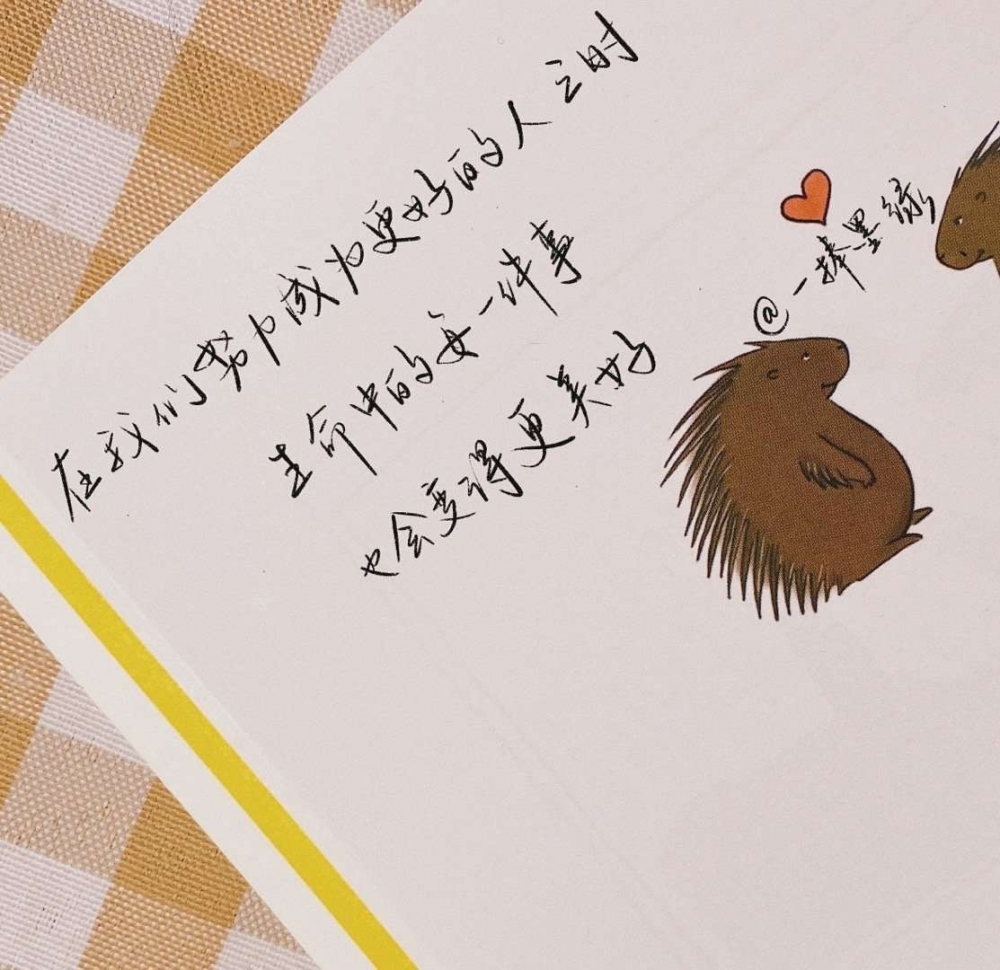 在我们努力成为更好的人之时
生命中的每一件事
也会变得更美好
@一捧墨缘